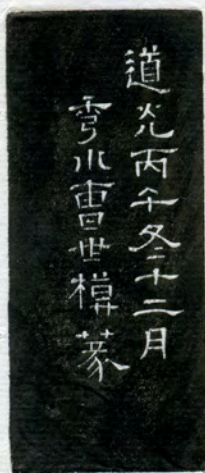 道光丙午冬十二月
秀水曹世模篆